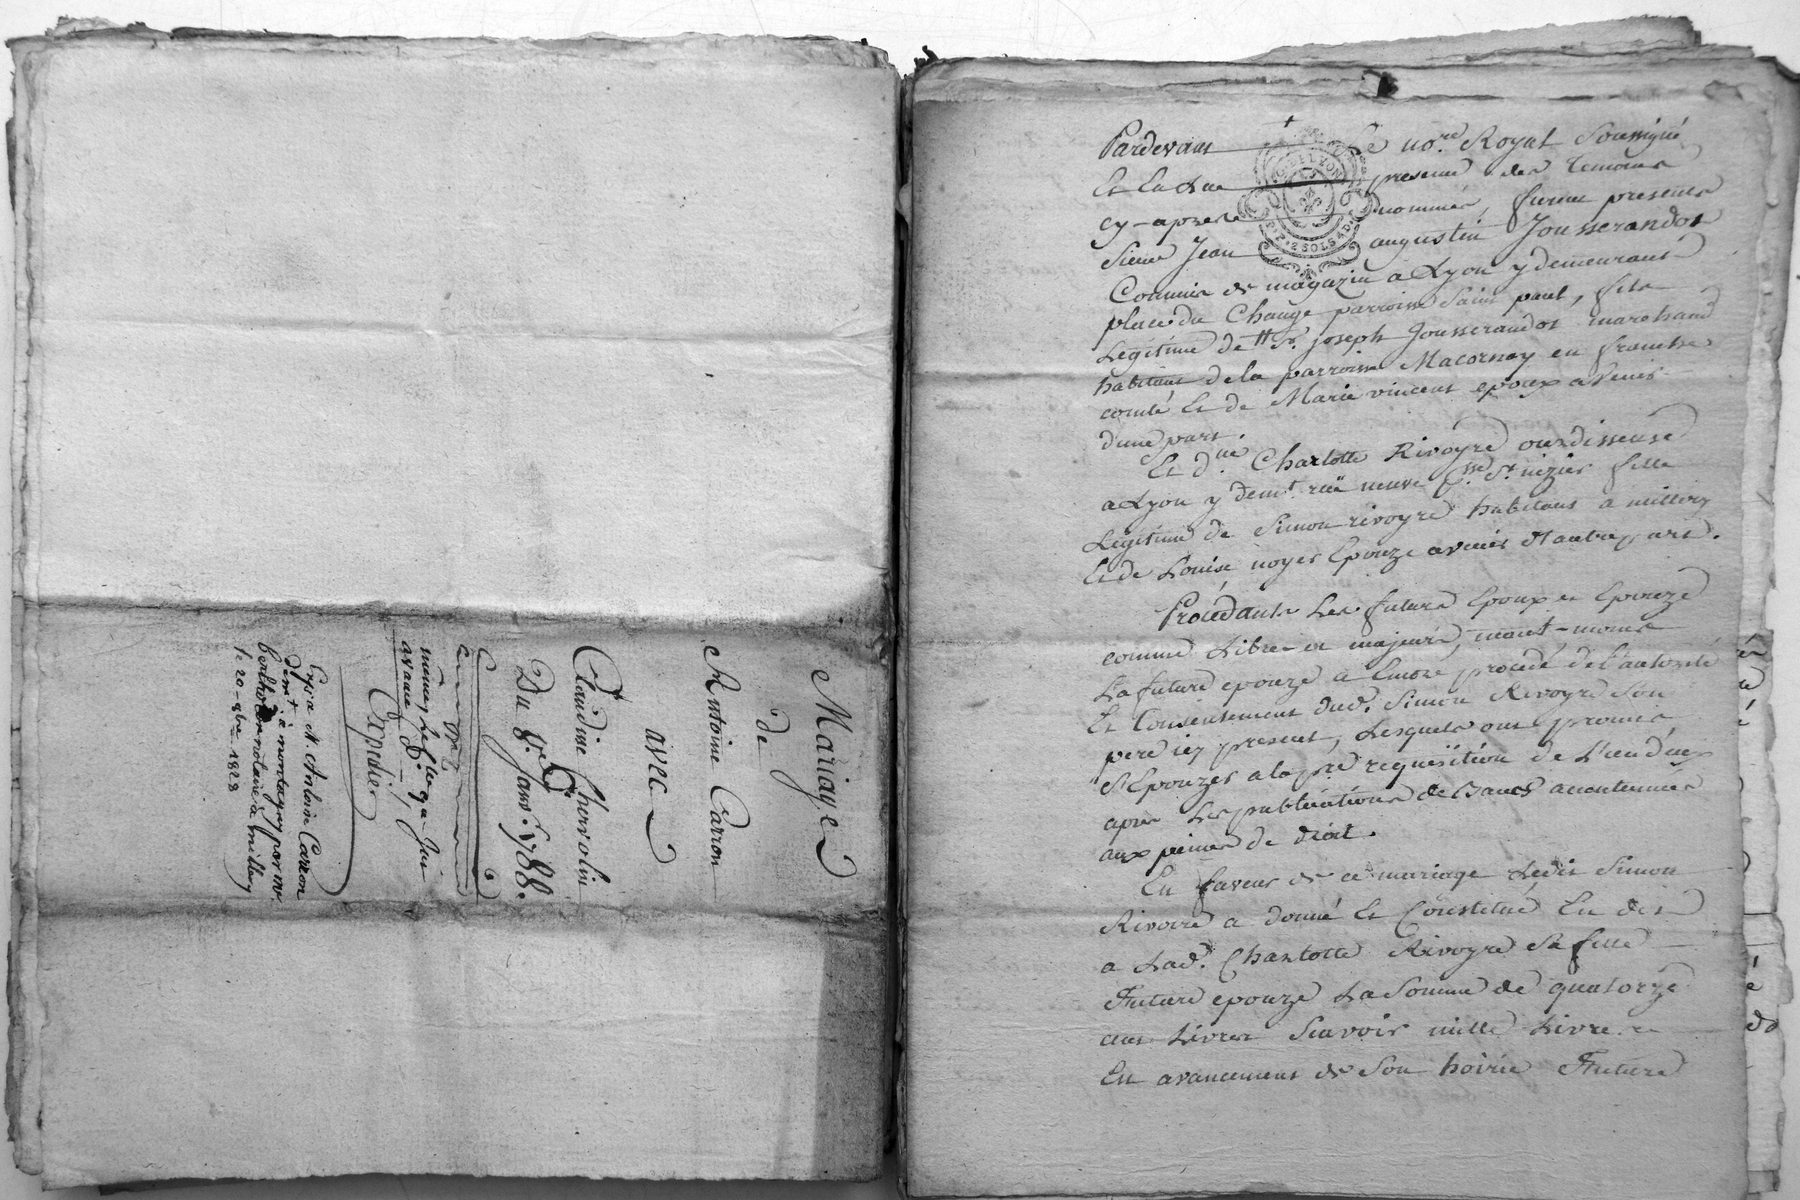 Mariage
de
Antoine Carron
avec
Claudine Chervolin
Du 8. Janv. 1788.
Expedier
Exp. a M. Antoine Carron
dem.t à montagny par me
notaire à millery
le 20 9bre 1828
Pardevant Le no.re Royal Soussigné
Et En La presence des Temoins
cy-apres nommés, furent presents
Sieur Jean augustin Jousserandot
Commis de magazin a Lyon y demeurant
place du Change parroisse Saint paul, fils
Legitime de Sr. joseph Jousserandot marchand
habitant de la parroisse Macornay en franche
comté Et de Marie vincent epoux a venir
d'une part.
Et d.lle Charlotte Rivoyre ourdisseuse
a Lyon y dem.t rüe neuve p.sse St nizier fille
Legitime de Simon rivoyre habitant a millery
Et de Louise noyer Epouze avenir d'autre part.
Procédants Les future Epoux et Epouze
comme Libres et majeurs, neant-moins
La future epouze a Encore procédé de l'autorité
Et Consentement dud. Simon Rivoyre Son
pere icy present, Lesquels ont promis
S'Epouzer a la pre requisition de L'un d'eux
apres Les publications de Bancs accoutumées
aux peines de droit.
En faveur de ce mariage Ledit Simon
Rivoire a donné Et Constitué En dot
a Lad. Charlotte Rivoyre Sa fille
Future epouze La Somme de quatorze
cent Livres Scavoir mille Livres
En avancement de Son hoirie Future
G. DE LYON
2 SOLS 4 D.